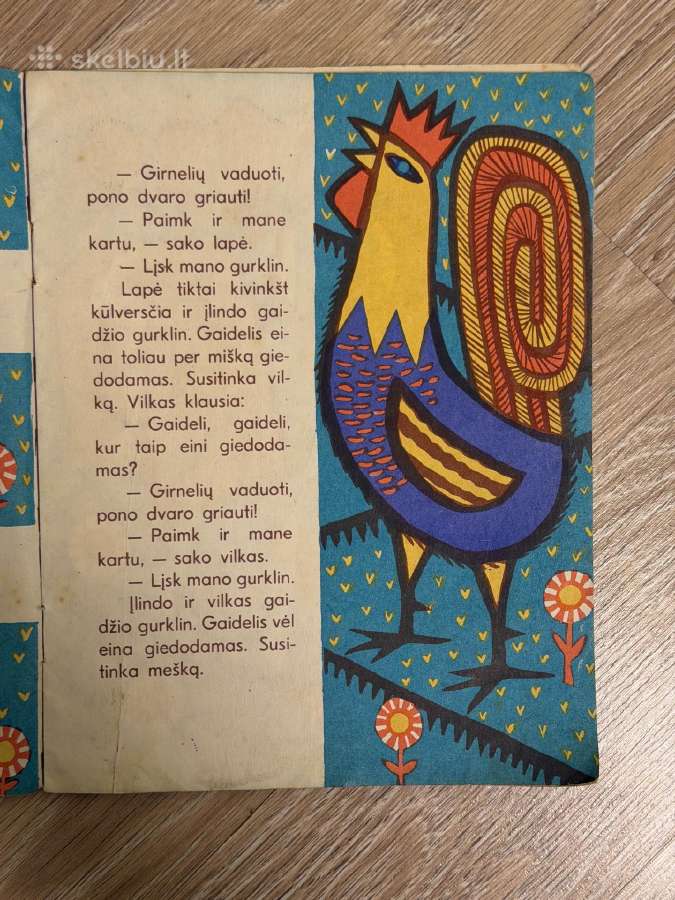 skelbiu.lt
— Girnelių vaduoti,
pono dvaro griauti!
— Paimk ir mane
kartu, — sako lapė.
— Lįsk mano gurklin.
Lapė tiktai kivinkšt
kūlversčia ir įlindo gai-
džio gurklin. Gaidelis ei-
na toliau per mišką gie-
dodamas. Susitinka vil-
ką. Vilkas klausia:
— Gaideli, gaideli,
kur taip eini giedoda-
mas?
— Girnelių vaduoti,
pono dvaro griauti!
— Paimk ir mane
kartu, — sako vilkas.
— Lįsk mano gurklin.
Įlindo ir vilkas gai-
džio gurklin. Gaidelis vėl
eina giedodamas. Susi-
tinka mešką.